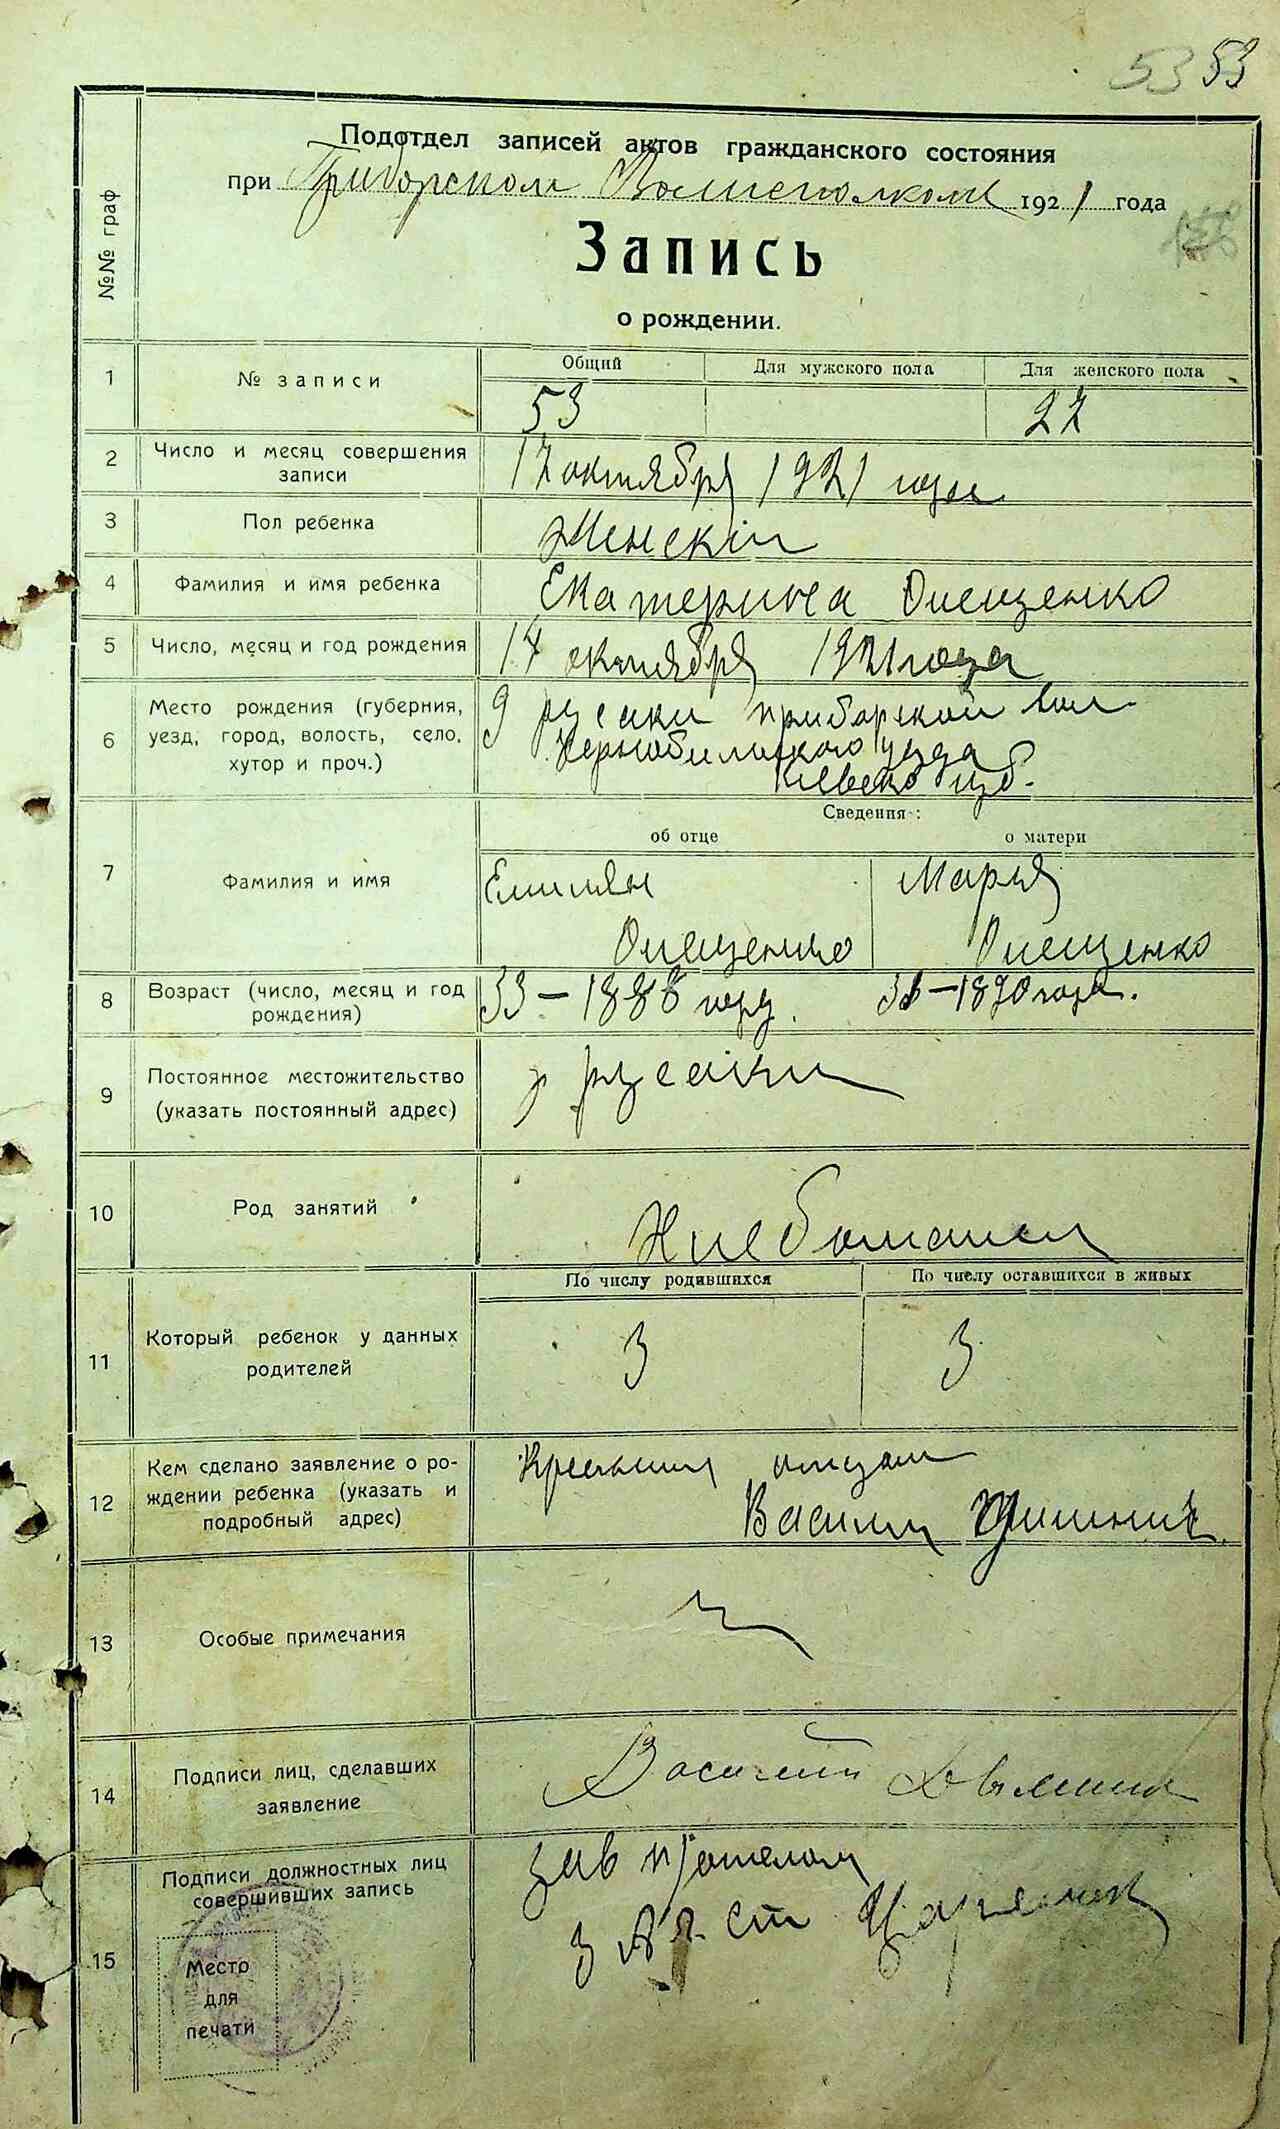 53 53
Подотдел записей актов гражданского состояния
при Приборском Волисполкоме 1921 года
№№ граф
Запись
о рождении.
1 № записи
Общий Для мужского пола Для женского пола
53 27
2 Число и месяц совершения записи
17 октября 1921 года
3 Пол ребенка
Женскій
4 Фамилия и имя ребенка
Екатерина Онещенко
5 Число, месяц и год рождения
17 октября 1921 года
6 Место рождения (губерния,
уезд, город, волость, село,
хутор и проч.)
русаки приборской вол
Чернобильского уезда
Киевско губ.
Сведения:
об отце о матери
7 Фамилия и имя
Емилян Марья
Онещенко Онещенко
8 Возраст (число, месяц и год
рождения)
33 – 1888 году. 31 – 1890 года.
9 Постоянное местожительство
(указать постоянный адрес)
русаки
10 Род занятий
Хлебопашец
По числу родившихся По числу оставшихся в живых
11 Который ребенок у данных
родителей
3 3
12 Кем сделано заявление о ро-
ждении ребенка (указать и
подробный адрес)
Крестным отцом
Васили
13 Особые примечания
14 Подписи лиц, сделавших
заявление
Василий
15 Подписи должностных лиц
совершивших запись
Зав п/отделом
З А Г. Ст
Место
для
печати